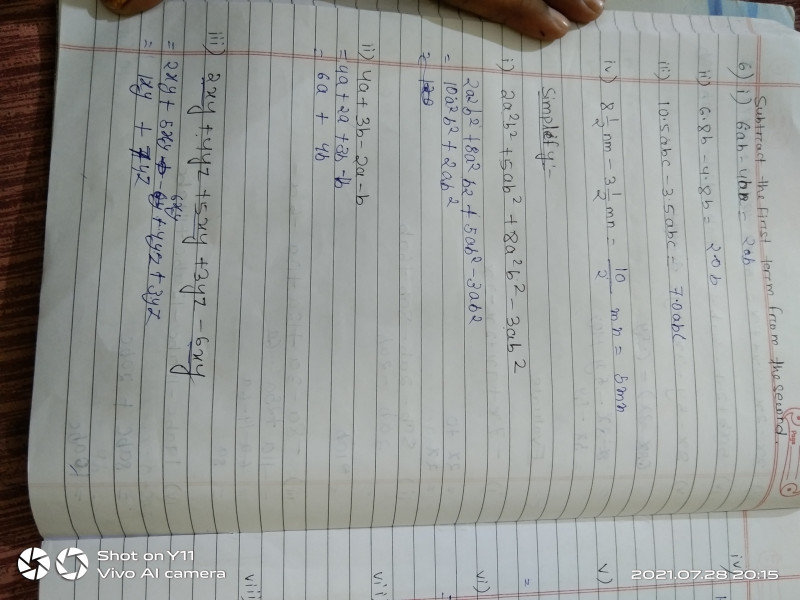 Subtract the first term from the second.
6) i) 6ab - 4ab = 2ab
ii) 6.8b - 4.8b = 2.0b
iii) 10.5abc - 3.5abc = 7.0abc
iv) 8 1/2 nm - 3 1/2 mn = 10/2 mn = 5mn
Simplify:-
i) 2a²b² + 5ab² + 8a²b² - 3ab²
2a²b² + 8a²b² + 5ab² - 3ab²
= 10a²b² + 2ab²
ii) 4a + 3b - 2a - b
= 4a + 2a + 3b - b
= 6a + 4b
iii) 2xy + 4yz + 5xy + 3yz - 6xy
= 2xy + 5xy - 6xy + 4yz + 3yz
= 1xy + 7yz
iv)
v)
=
vi)
=
vii
viii)
Shot on Y11
Vivo AI camera
2021.07.28 20:15